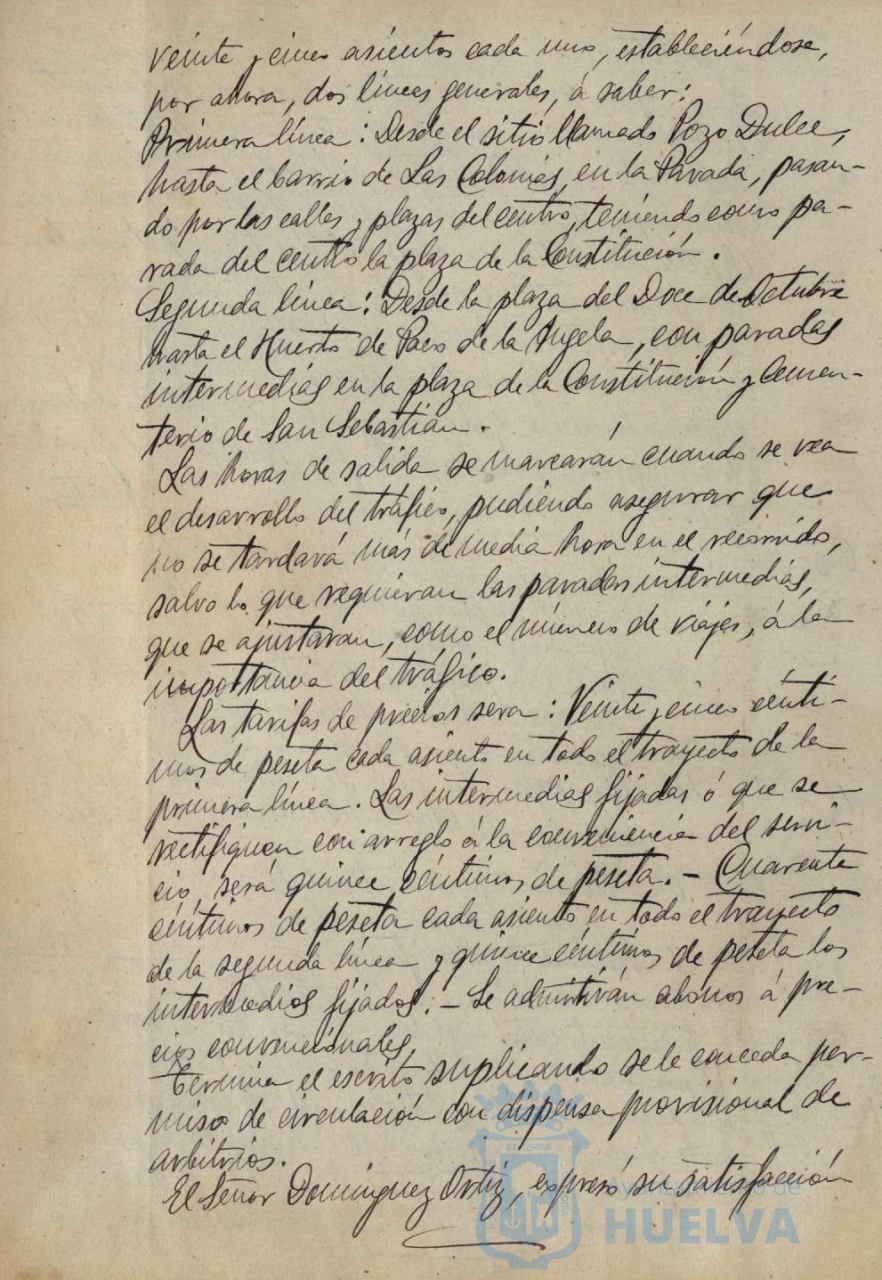 veinte y cinco asientos cada uno, estableciéndose,
por ahora, dos líneas generales, á saber:
Primera línea: Desde el sitio llamado Pozo Dulce,
hasta el barrio de Las Colonias, en la Parada, pasan-
do por las calles y plazas del centro, teniendo como pa-
rada del centro la plaza de la Constitución.
Segunda línea: Desde la plaza del Doce de Octubre
hasta el Huerto de Paco de la Angela, con paradas
intermedias en la plaza de la Constitución y Cemen-
terio de San Sebastián.
Las horas de salida se marcarán cuando se vea
el desarrollo del tráfico, pudiendo asegurar que
no se tardará más de media hora en el recorrido,
salvo lo que requieran las paradas intermedias,
que se ajustaran, como el número de viajes, á la
importancia del tráfico.
Las tarifas de precios sera: Veinte y cinco cénti-
mos de peseta cada asiento en todo el trayecto de la
primera línea. Las intermedias fijadas ó que se
rectifiquen con arreglo á la conveniencia del servi-
cio, será quince céntimos de peseta. - Cuarenta
céntimos de peseta cada asiento en todo el trayecto
de la segunda línea y quince céntimos de peseta los
intermedios fijados. - Se admitirán abonos á pre-
cios convencionales.
Termina el escrito suplicando se le conceda per-
miso de circulación con dispensa provisional de
arbitrios.
El Señor Domínguez Ortiz, expresó su satisfacción
Ayuntamiento de
HUELVA